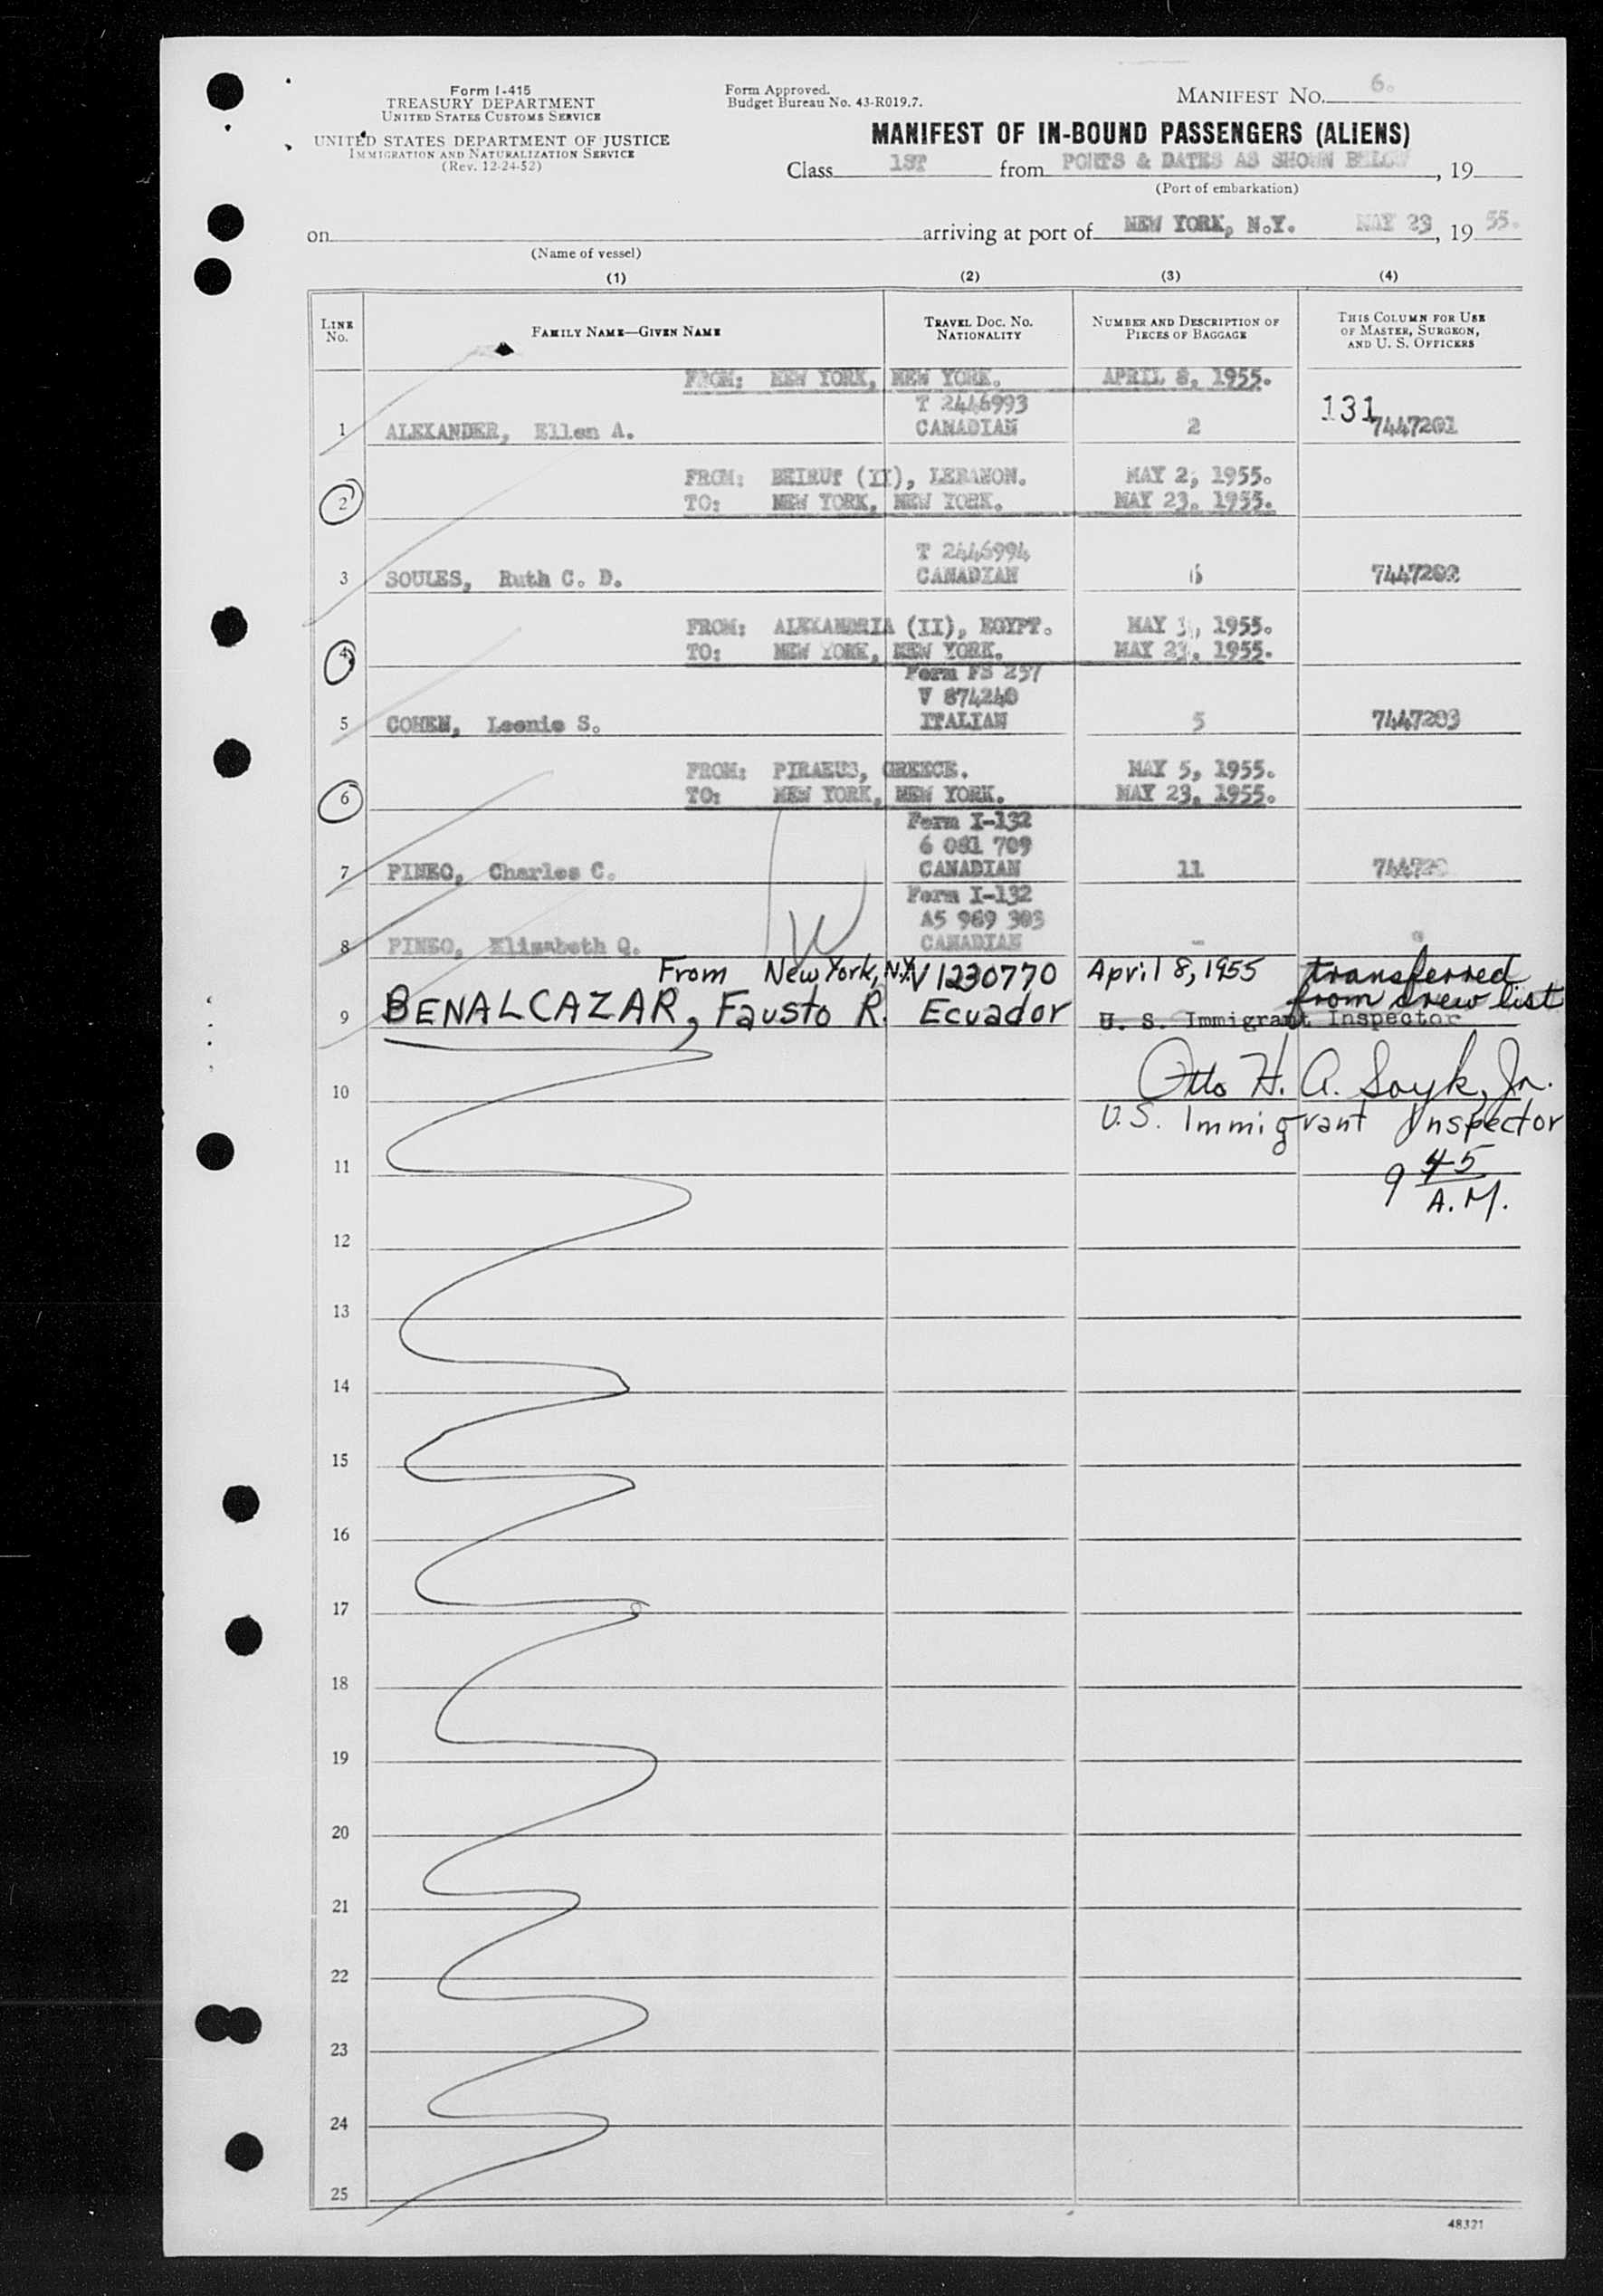 Form I-415
TREASURY DEPARTMENT
UNITED STATES CUSTOMS SERVICE
UNITED STATES DEPARTMENT OF JUSTICE
IMMIGRATION AND NATURALIZATION SERVICE
(Rev. 12-24-52)
Form Approved.
Budget Bureau No. 43-R019.7.
MANIFEST NO. 6.
MANIFEST OF IN-BOUND PASSENGERS (ALIENS)
Class 1ST from PORTS & DATES AS SHOWN BELOW, 19
(Port of embarkation)
on arriving at port of NEW YORK, N.Y. MAY 23, 19 55.
(Name of vessel)
(1) (2) (3) (4)
LINE No. FAMILY NAME—GIVEN NAME TRAVEL DOC. No. NATIONALITY NUMBER AND DESCRIPTION OF PIECES OF BAGGAGE THIS COLUMN FOR USE OF MASTER, SURGEON, AND U. S. OFFICERS
FROM: NEW YORK, NEW YORK. APRIL 8, 1955.
T 2446993 131
1 ALEXANDER, Ellen A. CANADIAN 2 7447201
FROM: BEIRUT (II), LEBANON. MAY 2, 1955.
2 TO: NEW YORK, NEW YORK. MAY 23, 1955.
T 2446994
3 SOULES, Ruth C. D. CANADIAN 7447202
FROM: ALEXANDRIA (II), EGYPT. MAY , 1955.
4 TO: NEW YORK, NEW YORK. MAY 23, 1955.
Form FS 257
V 874240
5 COHEN, Leonie S. ITALIAN 5 7447203
FROM: PIRAEUS, GREECE. MAY 5, 1955.
6 TO: NEW YORK, NEW YORK. MAY 23, 1955.
Form I-132
6 081 709
7 PINEO, Charles C. CANADIAN 11
Form I-132
A5 969 303
8 PINEO, Elizabeth Q. CANADIAN -
From New York, N.Y. V 1230770 April 8, 1955 transferred
from crew list
9 BENALCAZAR, Fausto R. Ecuador U. S. Immigrant Inspector
10 Otto H. A. Soyk, Jr.
U.S. Immigrant Inspector
11 9 45
A.M.
12
13
14
15
16
17
18
19
20
21
22
23
24
25
48321